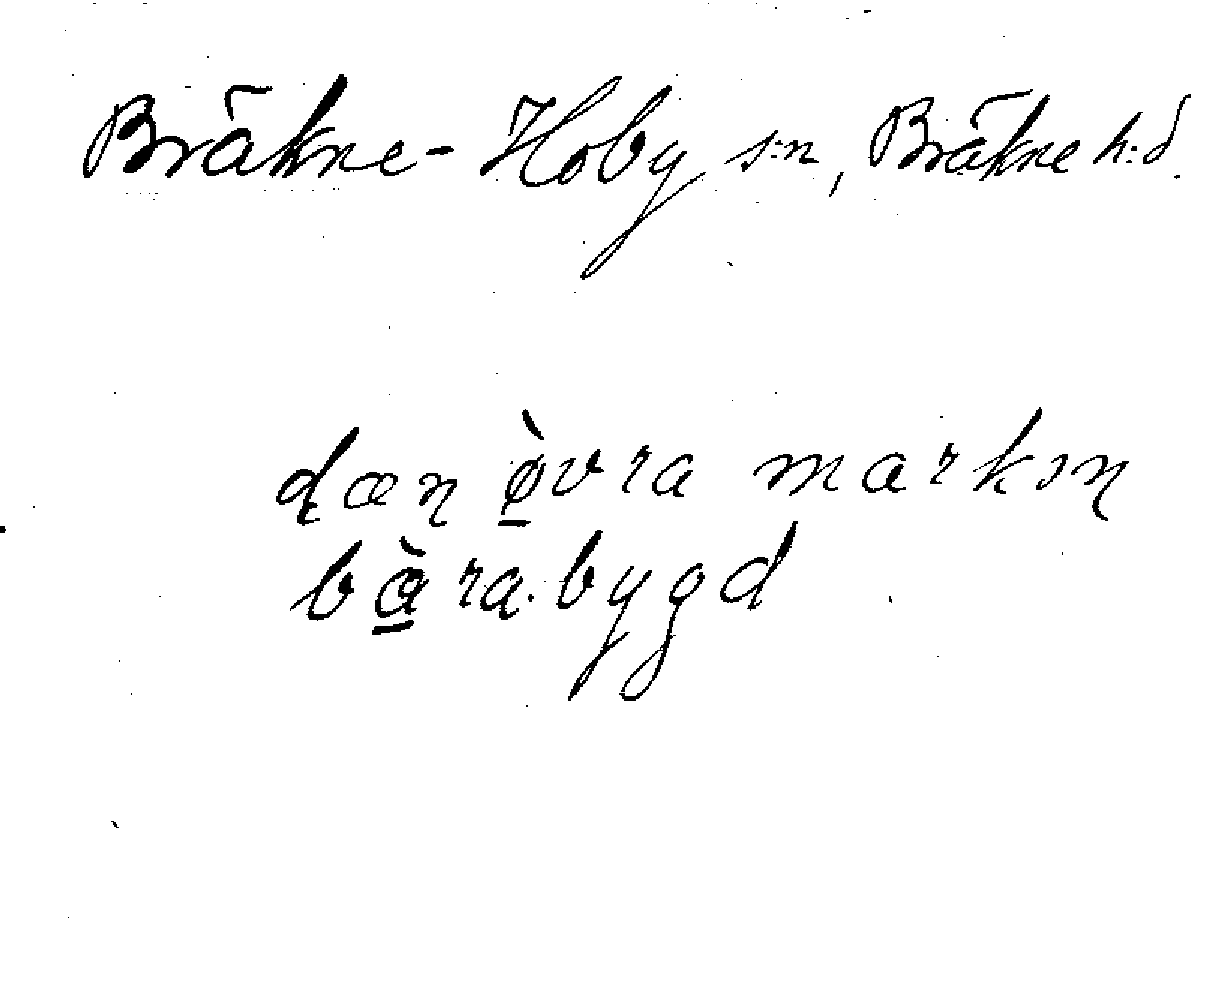 Bräkne-Hoby s:n, Bräkne h:d.
dæn ø̠̀vra markın
bà̠ra.bygd